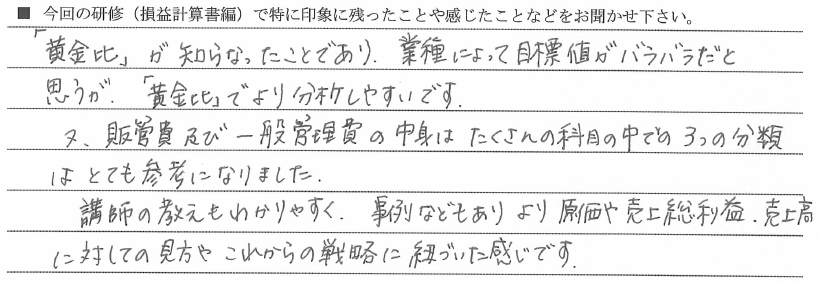 ■ 今回の研修（損益計算書編）で特に印象に残ったことや感じたことなどをお聞かせ下さい。
「黄金比」が知らなったことであり、業種によって目標値がバラバラだと
思うが、「黄金比」でより分析しやすいです。
又、販管費及び一般管理費の中身はたくさんの科目の中での3つの分類
はとても参考になりました。
講師の教えもわかりやすく、事例などもありより原価や売上総利益、売上高
に対しての見方やこれからの戦略に紐づいた感じです。